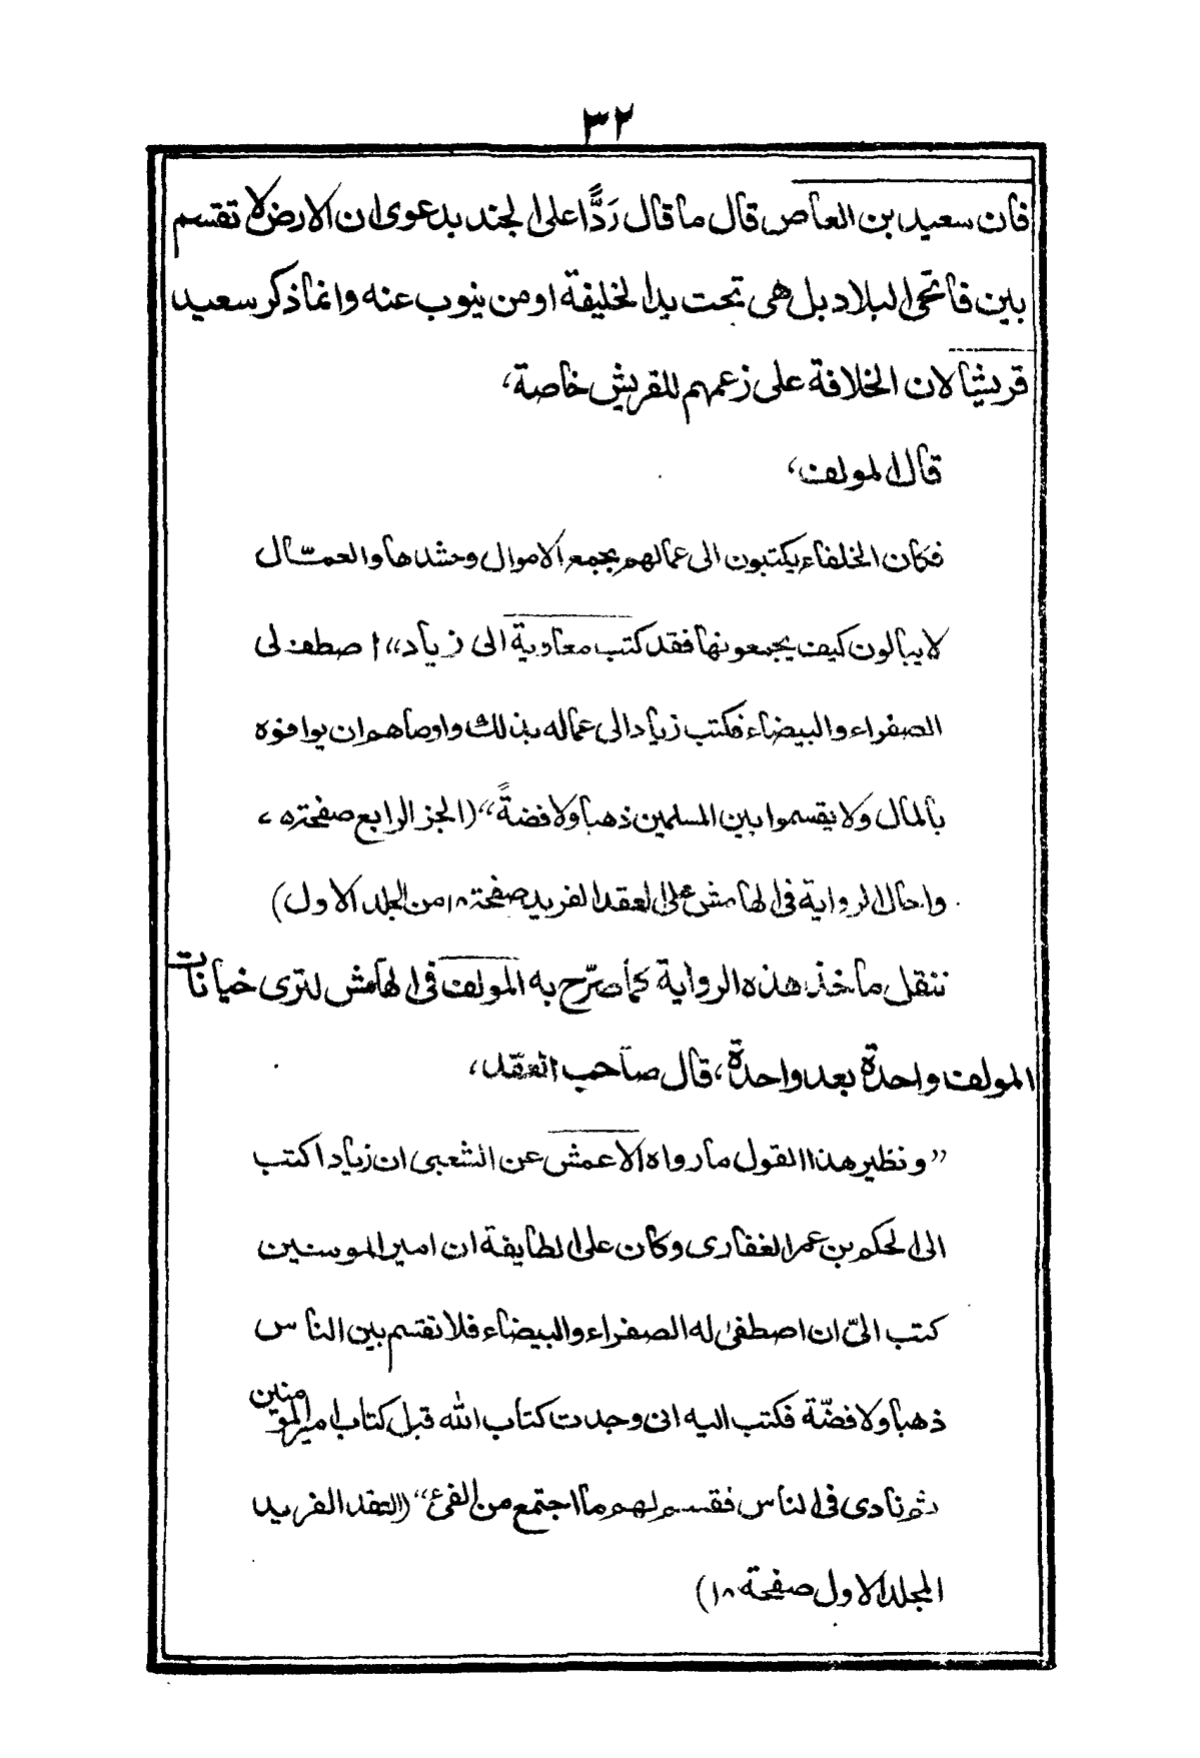 ٣٢
فان سعيد بن العاص قال ما قال رَدًّا على الجند بدعوى ان الارض لا تقسم
بين فاتحى البلاد بل هى تحت يد الخليفة او من ينوب عنه وانما ذكر سعيد
قريشا لان الخلافة على زعمهم للقريش خاصة،
قال المولف،
فكان الخلفاء يكتبون الى عمالهم بجمع الاموال وحشدها والعمّال
لا يبالون كيف يجمعونها فقد كتب معاوية الى زياد "اصطف لى
الصفراء والبيضاء فكتب زياد الى عماله بذلك واوصاهم ان يوافوه
بالمال ولا يقسموا بين المسلمين ذهبا ولا فضةً" (الجز الرابع صفحة
واحال الرواية فى الهامش على العقد الفريد صفحة ١٨ من الجلد الاول)
ننقل ماخذ هذه الرواية كما صرّح به المولف فى الهامش لترى خيانات
المولف واحدة بعد واحدة، قال صاحب العقد،
"ونظير هذا القول ما رواه الاعمش عن الشعبى ان زيادا كتب
الى الحكم بن عمر الغفارى وكان على الطايفة ان امير المومنين
كتب الىّ ان اصطفى له الصفراء والبيضاء فلا تقسم بين الناس
ذهبا ولا فضّة فكتب اليه انى وجدت كتاب الله قبل كتاب امير المومنين
ثم نادى فى الناس فقسم لهم ما اجتمع من الفئ" (العقد الفريد
المجلد الاول صفحة ١٨)